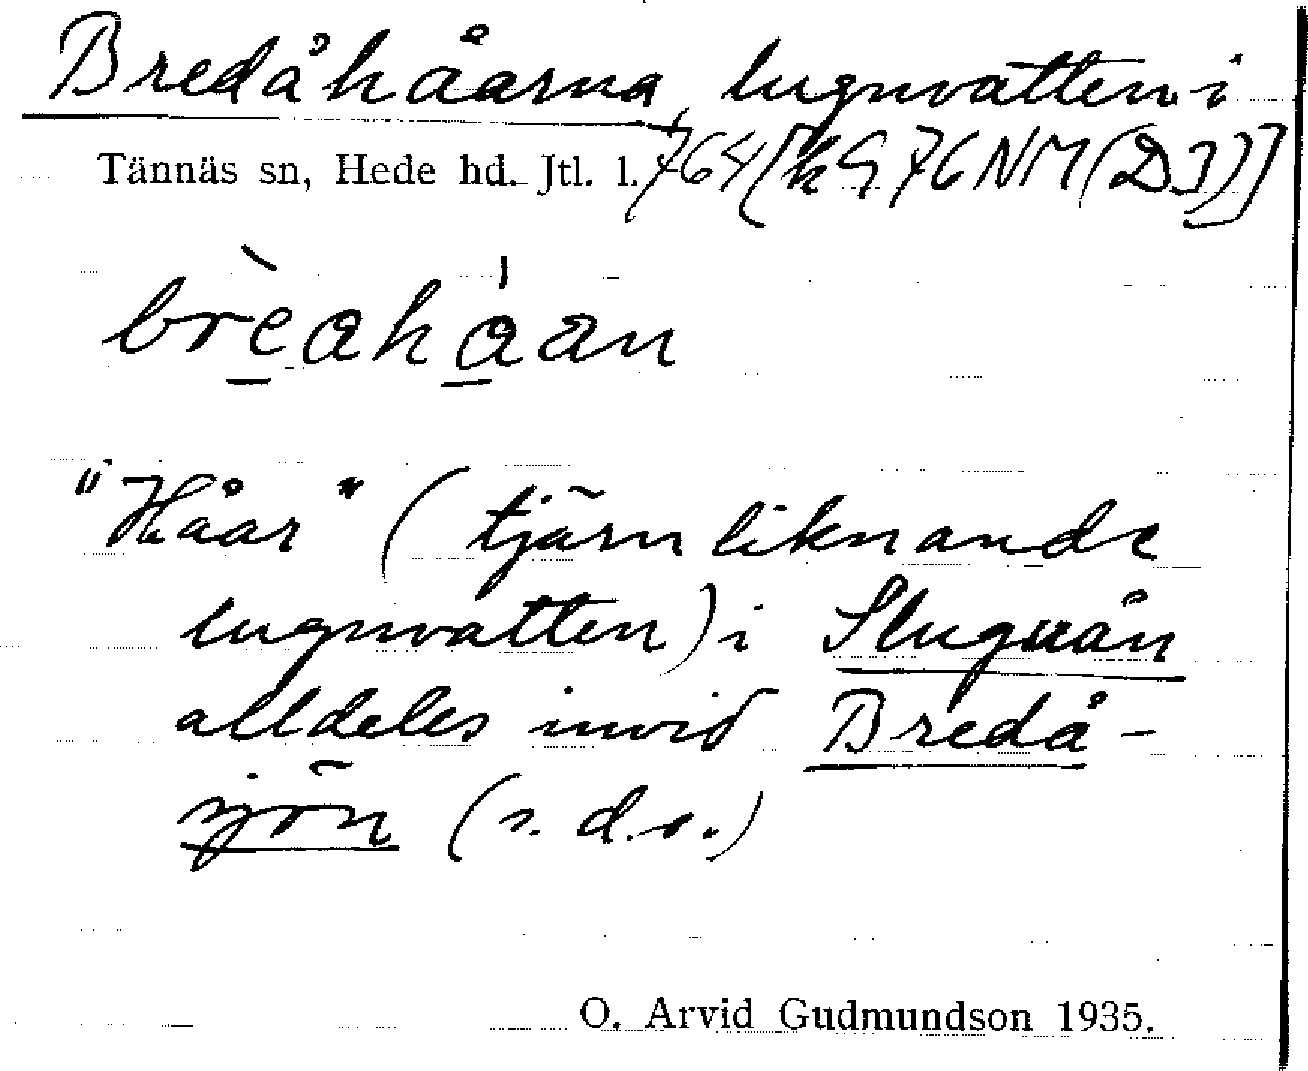 Bredåhåarna, lugnvatten i
Tännäs sn, Hede hd. Jtl. l. 764[k976NM(DJ)]
brèahåan
"Håar" (tjärnliknande
lugnvatten) i Slugnån
alldeles invid Bredå-
sjön (s.d.o.)
O. Arvid Gudmundson 1935.